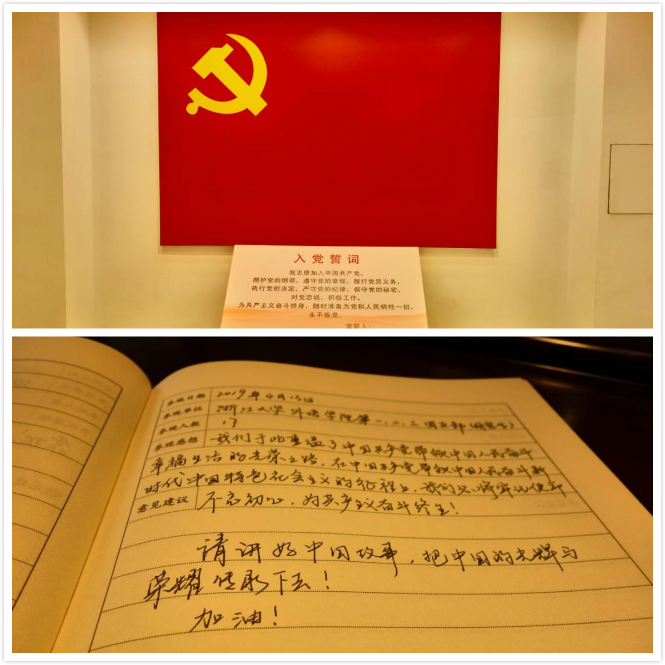 入党誓词
我志愿加入中国共产党，
拥护党的纲领，遵守党的章程，履行党员义务，
执行党的决定，严守党的纪律，保守党的秘密，
对党忠诚，积极工作，
为共产主义奋斗终身，随时准备为党和人民牺牲一切，
永不叛党。
宣誓人：
参观日期 2019年4月13日
参观单位 浙江大学外语学院第一、二、三团支部(研究生)
参观人数 17
参观感想 我们于此重温了中国共产党带领中国人民奋斗
幸福生活的光荣之路，在中国共产党带领中国人民奋斗新
时代中国特色社会主义的征程上，我们必将牢记使命
意见建议 不忘初心，为共产主义奋斗终生！
请讲好中国故事，把中国的光辉与
荣耀传承下去！
加油！